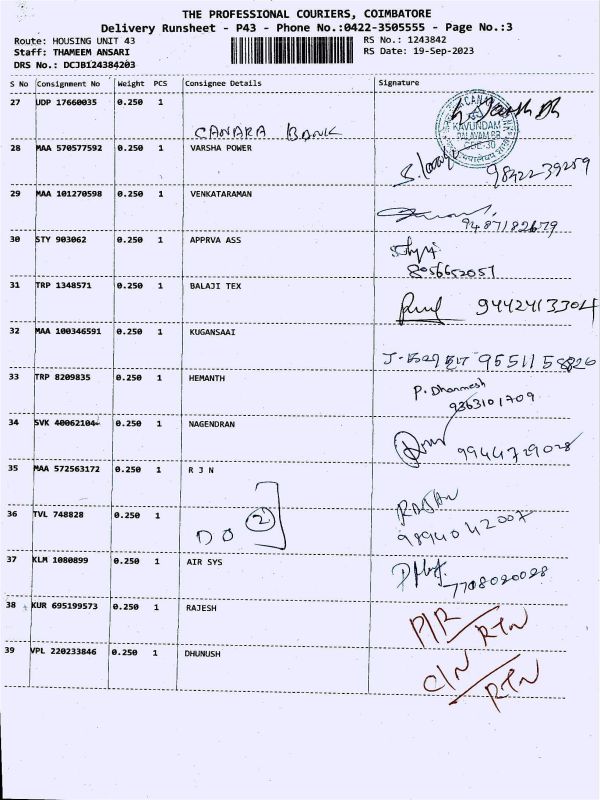 THE PROFESSIONAL COURIERS, COIMBATORE
Delivery Runsheet - P43 - Phone No.:0422-3505555 - Page No.:3
Route: HOUSING UNIT 43 RS No.: 1243842
Staff: THAMEEM ANSARI RS Date: 19-Sep-2023
DRS No.: DCJB124384203
S No Consignment No Weight PCS Consignee Details Signature
27 UDP 17660035 0.250 1
CANARA BANK
KAVUNDAM
PALAYAM BR
CBE-30
28 MAA 570577592 0.250 1 VARSHA POWER
9842239259
29 MAA 101270598 0.250 1 VENKATARAMAN
9487182679
30 STY 903062 0.250 1 APPRVA ASS
8056652057
31 TRP 1348571 0.250 1 BALAJI TEX
9442413304
32 MAA 100346591 0.250 1 KUGANSAAI
9551158826
33 TRP 8209835 0.250 1 HEMANTH
P. Dharmesh
9363101709
34 SVK 40062104 0.250 1 NAGENDRAN
9944729028
35 MAA 572563172 0.250 1 R J N
RAJAN
36 TVL 748828 0.250 1 DO 2
9894042007
37 KLM 1080899 0.250 1 AIR SYS
7708020028
38 KUR 695199573 0.250 1 RAJESH
P/R RTN
39 VPL 220233846 0.250 1 DHUNUSH
C/N RTN